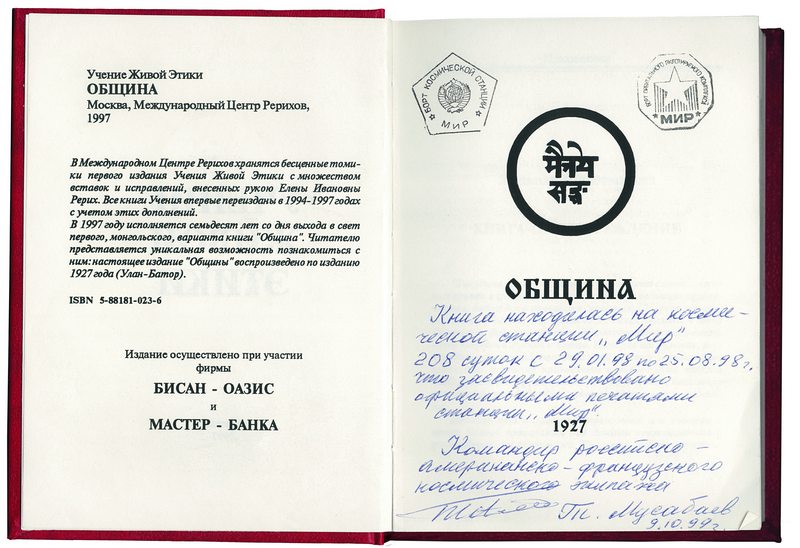 Учение Живой Этики
ОБЩИНА
Москва, Международный Центр Рерихов,
1997
В Международном Центре Рерихов хранятся бесценные томи-
ки первого издания Учения Живой Этики с множеством
вставок и исправлений, внесенных рукою Елены Ивановны
Рерих. Все книги Учения впервые переизданы в 1994-1997 годах
с учетом этих дополнений.
В 1997 году исполняется семьдесят лет со дня выхода в свет
первого, монгольского, варианта книги "Община". Читателю
представляется уникальная возможность познакомиться с
ним: настоящее издание "Общины" воспроизведено по изданию
1927 года (Улан-Батор).
ISBN 5-88181-023-6
Издание осуществлено при участии
фирмы
БИСАН - ОАЗИС
и
МАСТЕР - БАНКА
БОРТ КОСМИЧЕСКОЙ СТАНЦИИ
МИР
БОРТ ОРБИТАЛЬНОГО ПИЛОТИРУЕМОГО КОМПЛЕКСА
МИР
मैत्रेय
सङ्घ
ОБЩИНА
Книга находилась на косми-
ческой станции „Мир"
208 суток с 29.01.98 по 25.08.98г.
что засвидетельствовано
официальными печатями
станции „Мир".
1927
Командир российско-
американско-французского
космического экипажа
Т. Мусабаев
9.10.99г.